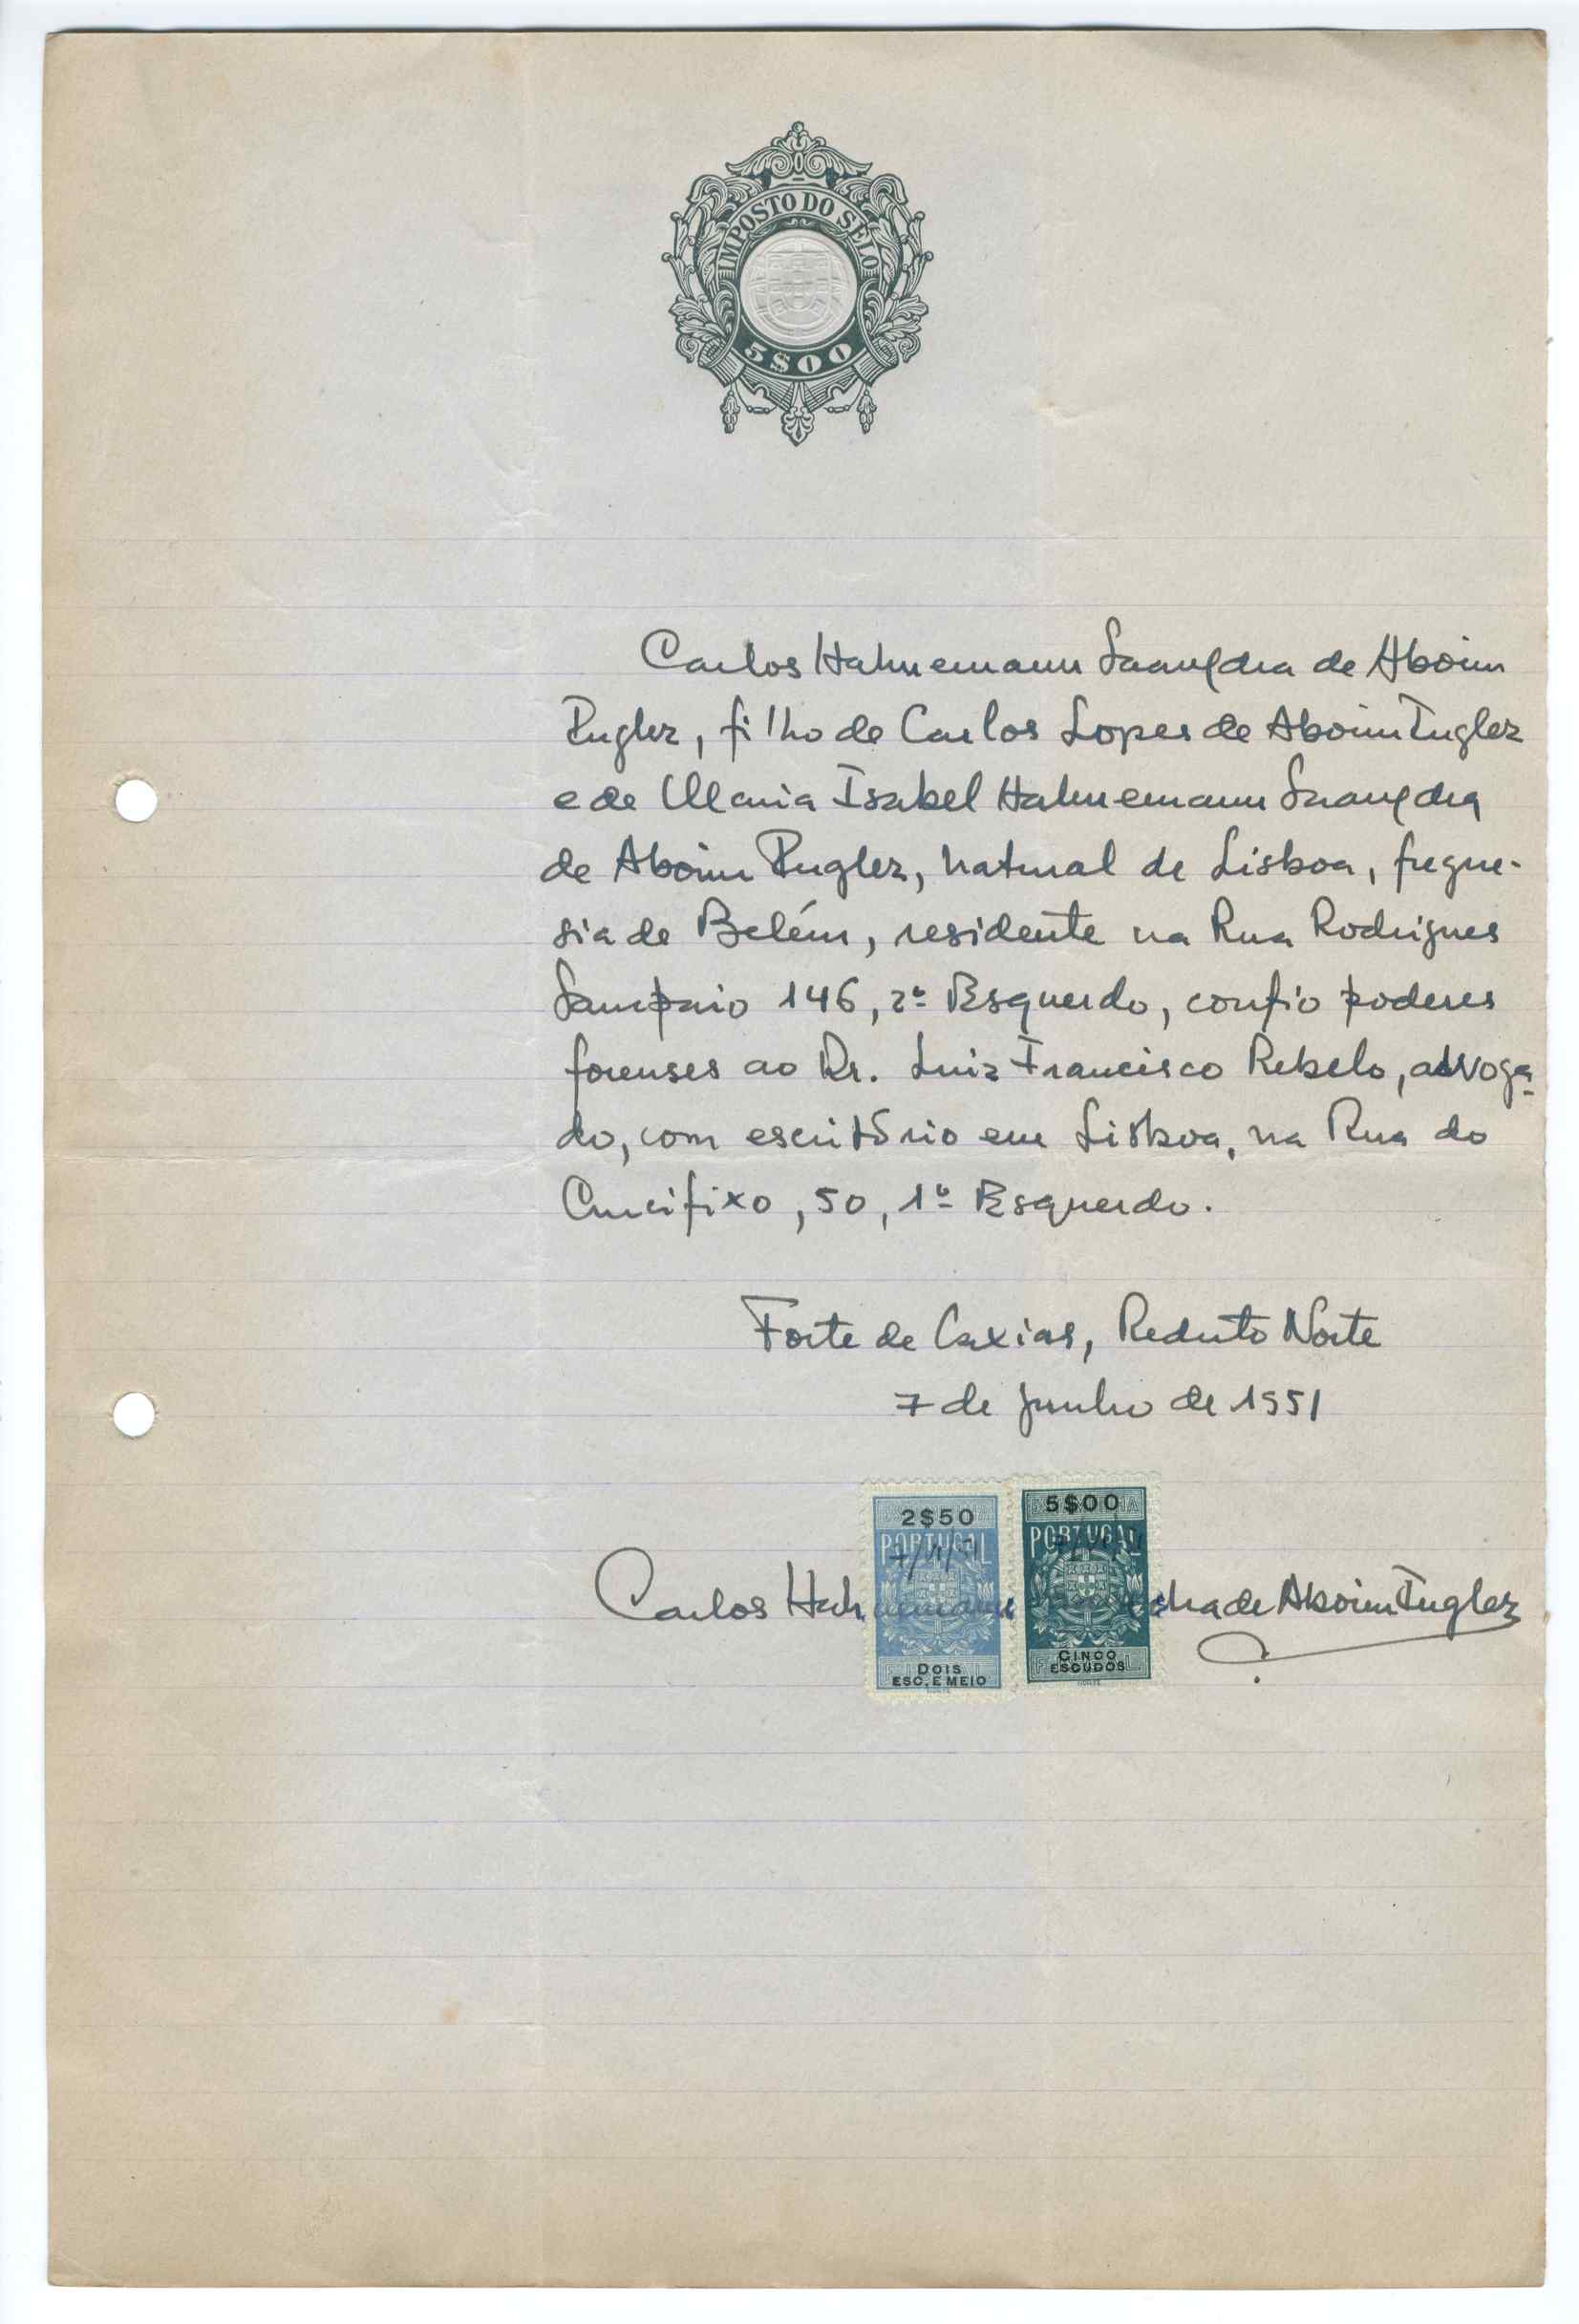 IMPOSTO DO SELO
5$00
Carlos Hahnemann Saavedra de Aboim
Inglez, filho de Carlos Lopes de Aboim Inglez
e de Maria Isabel Hahnemann Saavedra
de Aboim Inglez, natural de Lisboa, fregue-
sia de Belém, residente na Rua Rodrigues
Sampaio 146, 2º Esquerdo, confio poderes
forenses ao Dr. Luiz Francisco Rebelo, advoga-
do, com escritório em Lisboa, na Rua do
Crucifixo, 50, 1º Esquerdo.
Forte de Caxias, Reduto Norte
7 de Junho de 1951
2$50 5$00
PORTUGAL PORTUGAL
Carlos Hahnemann Saavedra de Aboim Inglez
DOIS ESC. E MEIO
CINCO ESCUDOS